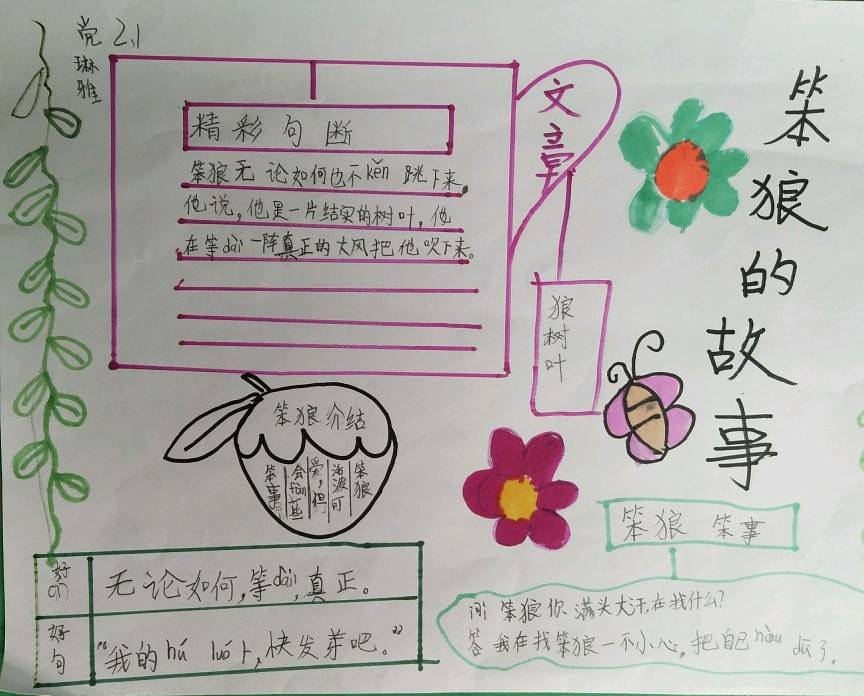 党琳雅 2.1
笨狼的故事
文章
狼树叶
精彩句断
笨狼无论如何也不kěn跳下来。
他说，他是一片结实的树叶，他
在等dài一阵真正的大风把他吹下来。
笨狼介结
笨狼
活波可
爱，但
会fàn些
笨事
好
无论如何，等dài，真正。
好句
“我的hú luó卜，快发芽吧。”
笨狼 笨事
问 笨狼你满头大汗，在找什么？
答 我在找笨狼一不小心，把自己